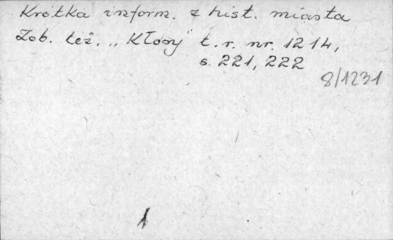 Krótka inform. z hist. miasta
Zob. też. „Kłosy" t. r. nr. 1214,
s. 221, 222
8/1231